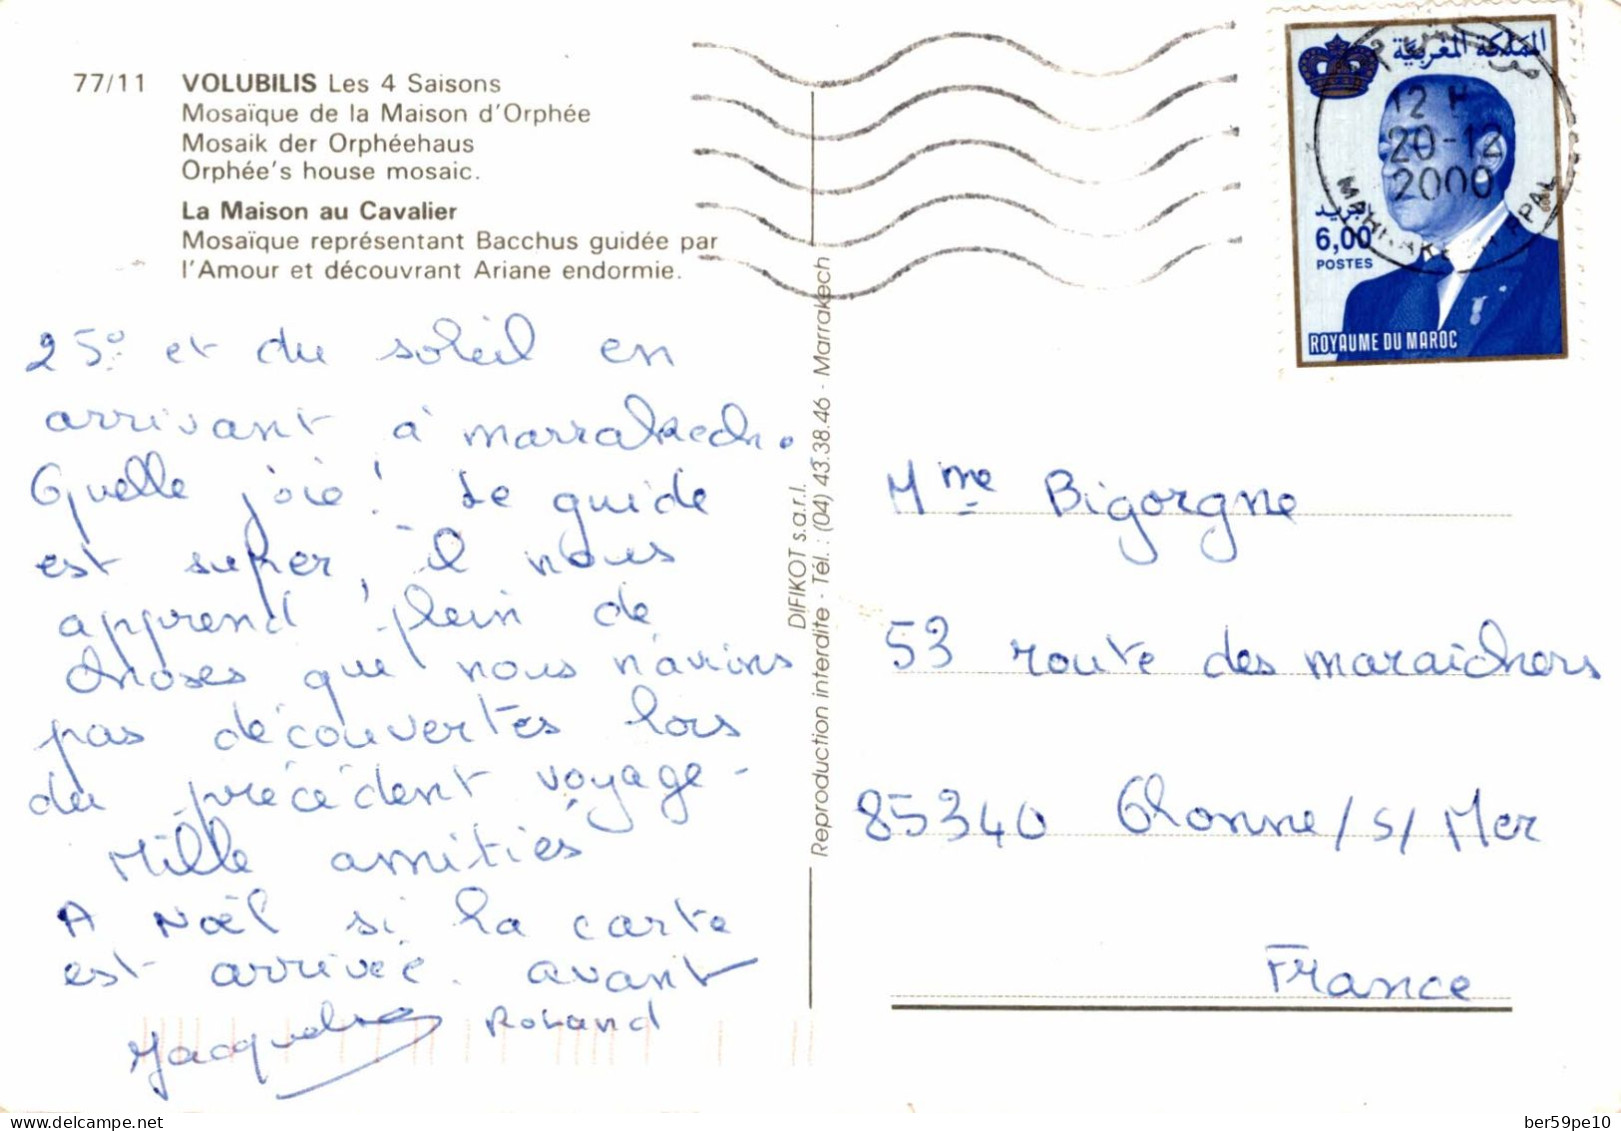 77/11 VOLUBILIS Les 4 Saisons
Mosaïque de la Maison d'Orphée
Mosaik der Orphéehaus
Orphée's house mosaic.
La Maison au Cavalier
Mosaïque représentant Bacchus guidée par
l'Amour et découvrant Ariane endormie.
25° et du soleil en
arrivant à marrakech.
Quelle joie ! Le guide
est super, il nous
apprend plein de
choses que nous n'avions
pas découvertes lors
du précédent voyage -
Mille amitiés
A Noël si la carte
est arrivée avant
Jacqueline Roland
DIFIKOT s.a.r.l.
Reproduction interdite - Tél. : (04) 43.38.46 - Marrakech
المملكة المغربية
12 H
20-12
2000
MARRAKECH PPAL
بريد
6,00
POSTES
ROYAUME DU MAROC
Mme Bigorgne
53 route des maraichers
85340 Olonne/s/Mer
France
delcampe.net
ber59pe10